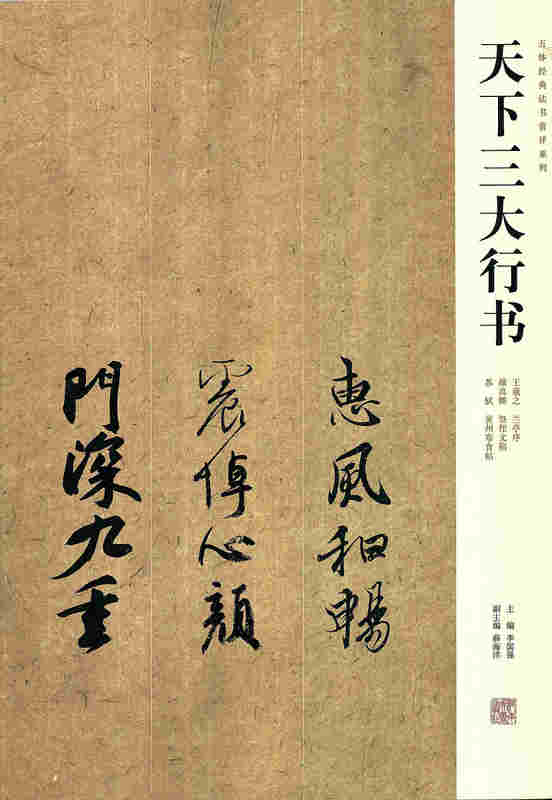 五体经典法书赏评系列
天下三大行书
王羲之 兰亭序
颜真卿 祭侄文稿
苏轼 黄州寒食帖
主编 李国强
副主编 薛海洋
惠風和暢
震悼心顏
門深九重